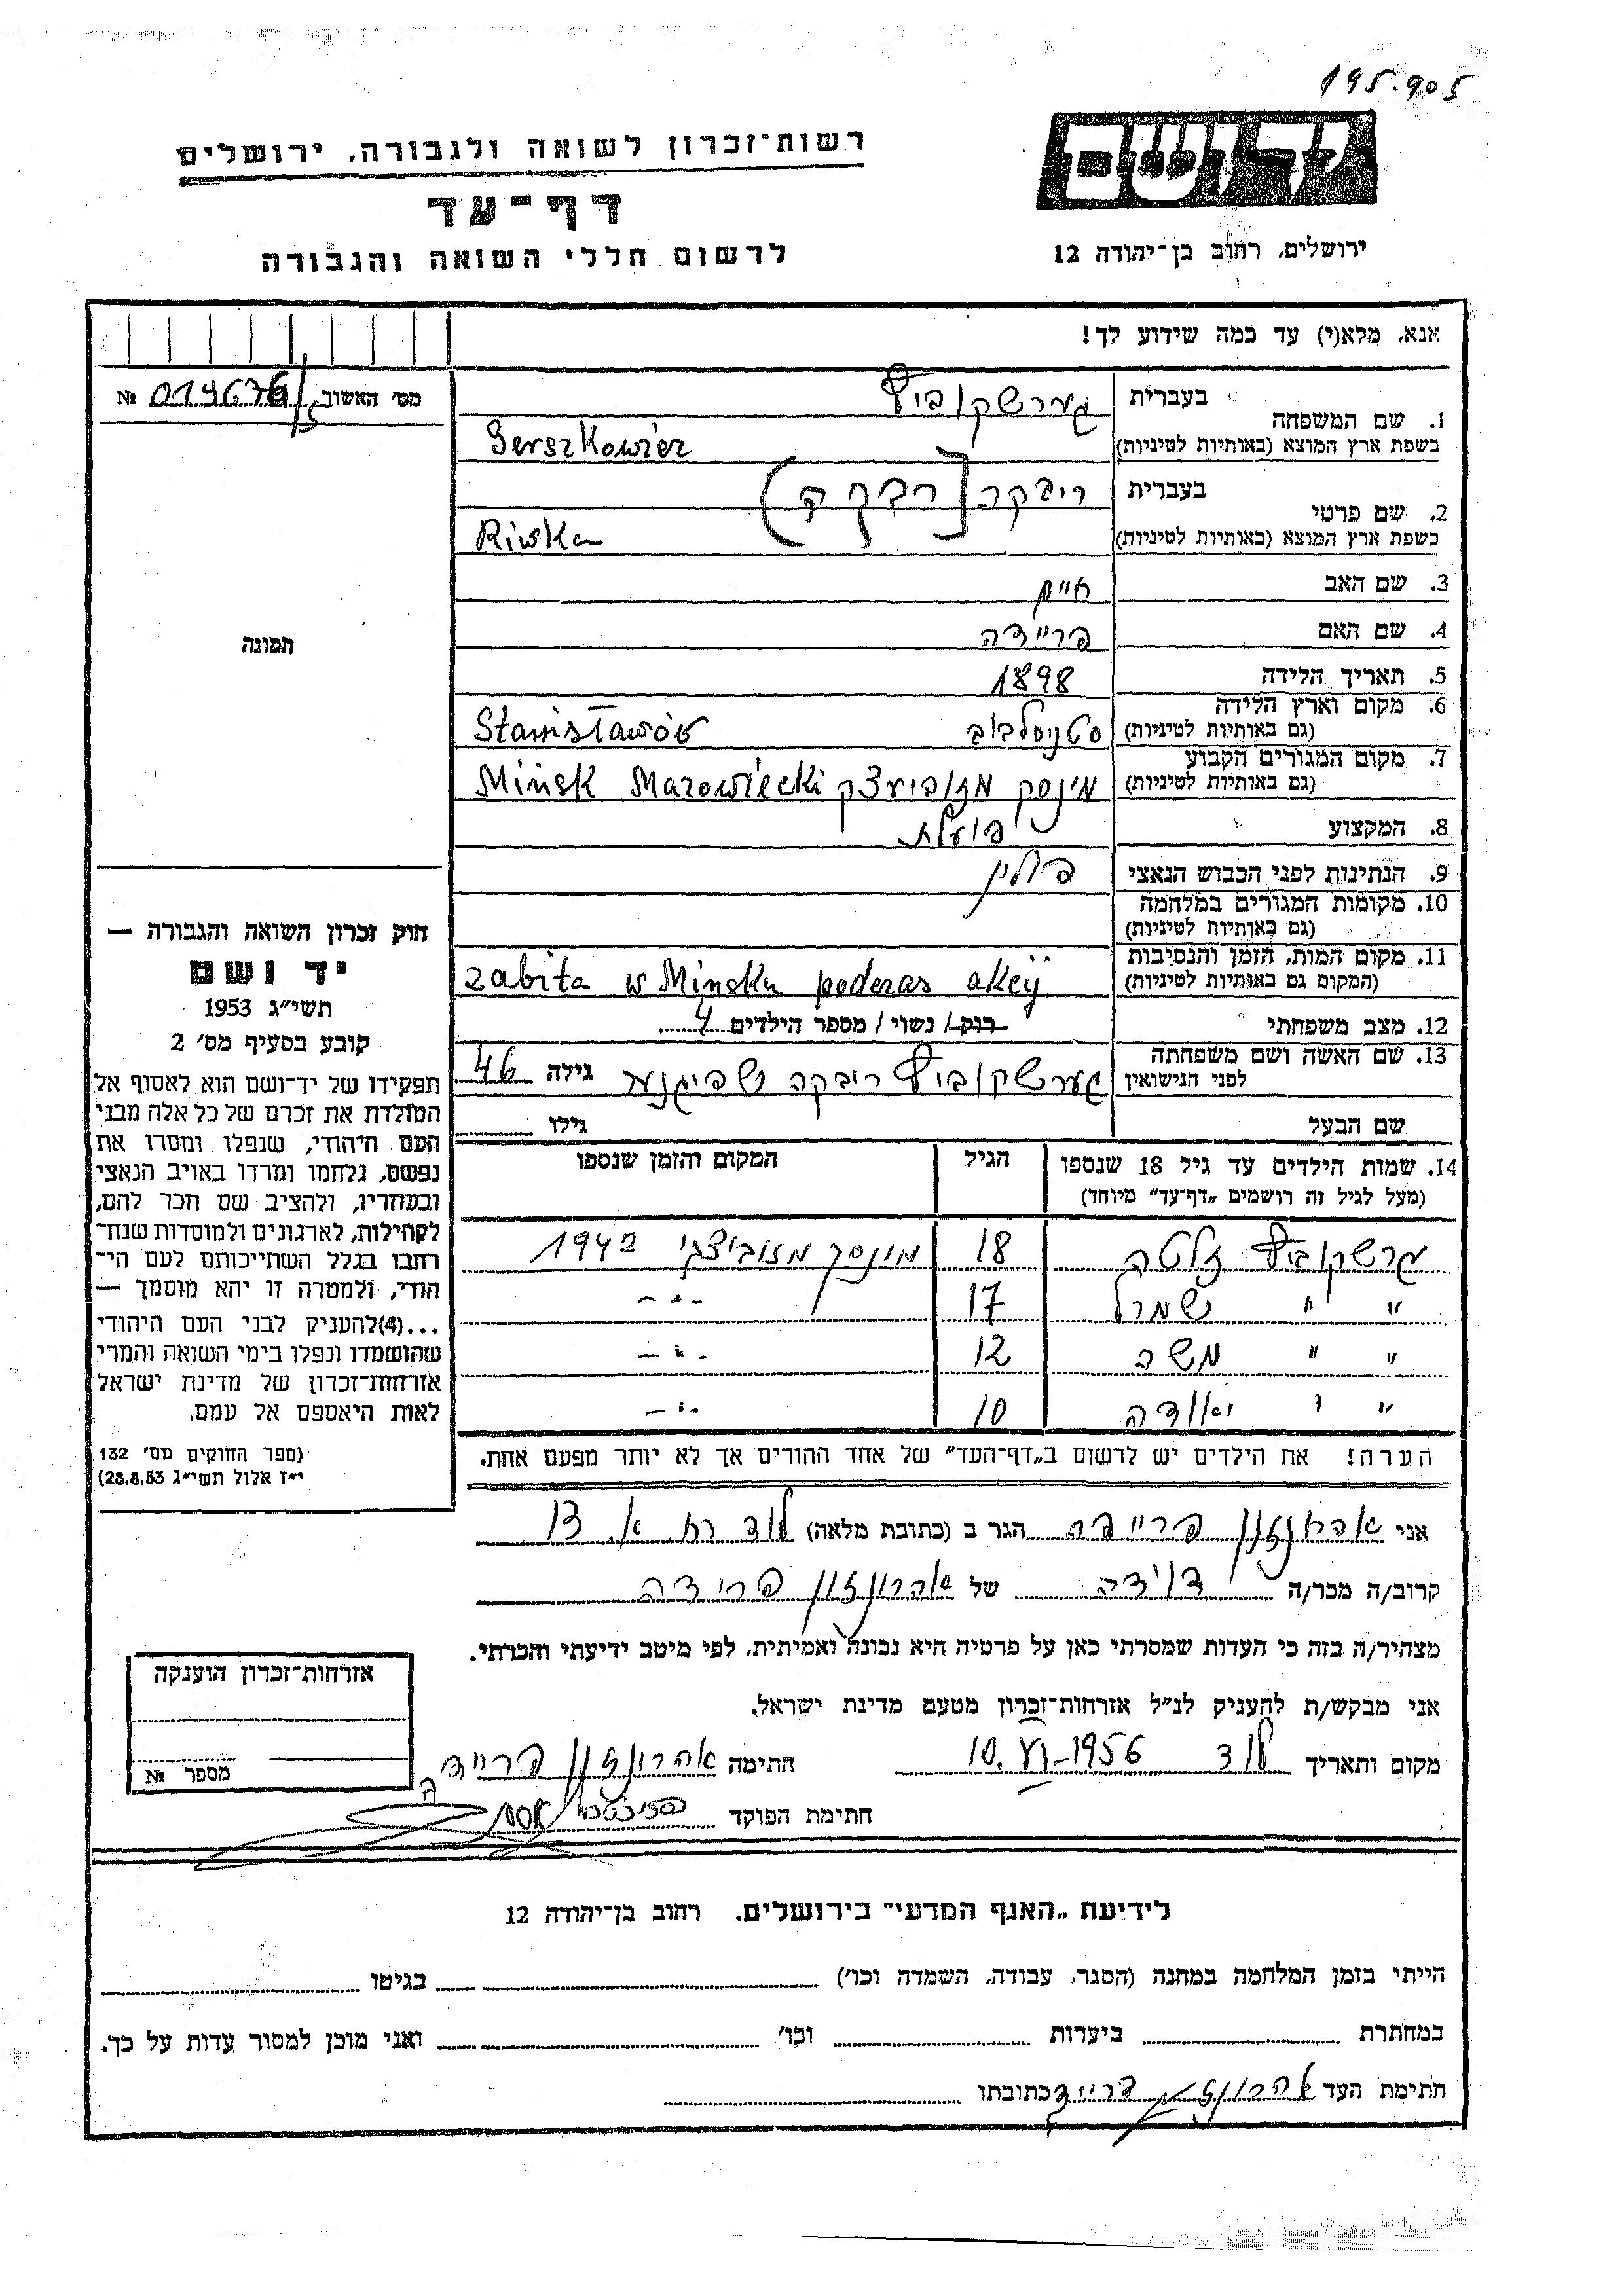 195.905
יד ושם
רשות־זכרון לשואה ולגבורה. ירושלים
דף־עד
לרשום חללי השואה והגבורה
ירושלים. רחוב בן־יהודה 12
אנא. מלא(י) עד כמה שידוע לך!
מס׳ האשוב № 019676/5
1. שם המשפחה
בעברית גערשקוביץ
בשפת ארץ המוצא (באותיות לטיניות) Gerszkowicz
2. שם פרטי
בעברית ריבקה (רבקה)
בשפת ארץ המוצא (באותיות לטיניות) Riwka
3. שם האב חיים
4. שם האם פריידה
5. תאריך הלידה 1898
6. מקום וארץ הלידה
(גם באותיות לטיניות) סטניסלבוב Stanisławów
7. מקום המגורים הקבוע
(גם באותיות לטיניות) מינסק מזוביעצק Mińsk Mazowiecki
8. המקצוע פועלת
9. הנתינות לפני הכבוש הנאצי פולין
10. מקומות המגורים במלחמה
(גם באותיות לטיניות)
11. מקום המות, הזמן והנסיבות
(המקום גם באותיות לטיניות) zabita w Mińsku poderas akcji
12. מצב משפחתי רוק/ נשוי/ מספר הילדים 4
13. שם האשה ושם משפחתה
לפני הנישואין גערשקוביץ ריבקה שפיגנער גילה 46
שם הבעל גילו
14. שמות הילדים עד גיל 18 שנספו הגיל המקום והזמן שנספו
(מעל לגיל זה רושמים „דף־עד״ מיוחד)
גרשקוביץ זלטה 18 מינסק מזוביצקי 1942
" " שמרל 17 -"-
" " משה 12 -"-
" " 10 -"-
הערה! את הילדים יש לרשום ב„דף־העד״ של אחד ההורים אך לא יותר מפעם אחת.
תמונה
חוק זכרון השואה והגבורה —
יד ושם
תשי״ג 1953
קובע בסעיף מס׳ 2
תפקידו של יד־ושם הוא לאסוף אל
המולדת את זכרם של כל אלה מבני
העם היהודי, שנפלו ומסרו את
נפשם, נלחמו ומרדו באויב הנאצי
ובעוזריו, ולהציב שם וזכר להם,
לקהילות, לארגונים ולמוסדות שנח־
רחבו בגלל השתייכותם לעם הי־
הודי, ולמטרה זו יהא מוסמך —
...(4)להעניק לבני העם היהודי
שהושמדו ונפלו בימי השואה והמרי
אזרחות־זכרון של מדינת ישראל
לאות היאספם אל עמם.
(ספר החוקים מס׳ 132
י״ז אלול תשי״ג 28.8.53)
אני אהרונזון פריידה הגר ב (כתובת מלאה) לוד רח.
קרוב/ה מכר/ה דוידה של אהרונזון פרידה
מצהיר/ה בזה כי העדות שמסרתי כאן על פרטיה היא נכונה ואמיתית, לפי מיטב ידיעתי והכרתי.
אני מבקש/ת להעניק לנ״ל אזרחות־זכרון מטעם מדינת ישראל.
מקום ותאריך לוד 10.VI-1956 חתימה אהרונזון פריידה
חתימת הפוקד
אזרחות־זכרון הוענקה
מספר №
לידיעת „האנף המדעי״ בירושלים. רחוב בן־יהודה 12
הייתי בזמן המלחמה במחנה (הסגר, עבודה, השמדה וכו׳) בגיטו
במחתרת ביערות וכו׳ ואני מוכן למסור עדות על כך.
חתימת העד אהרונזון פרייד כתובתו